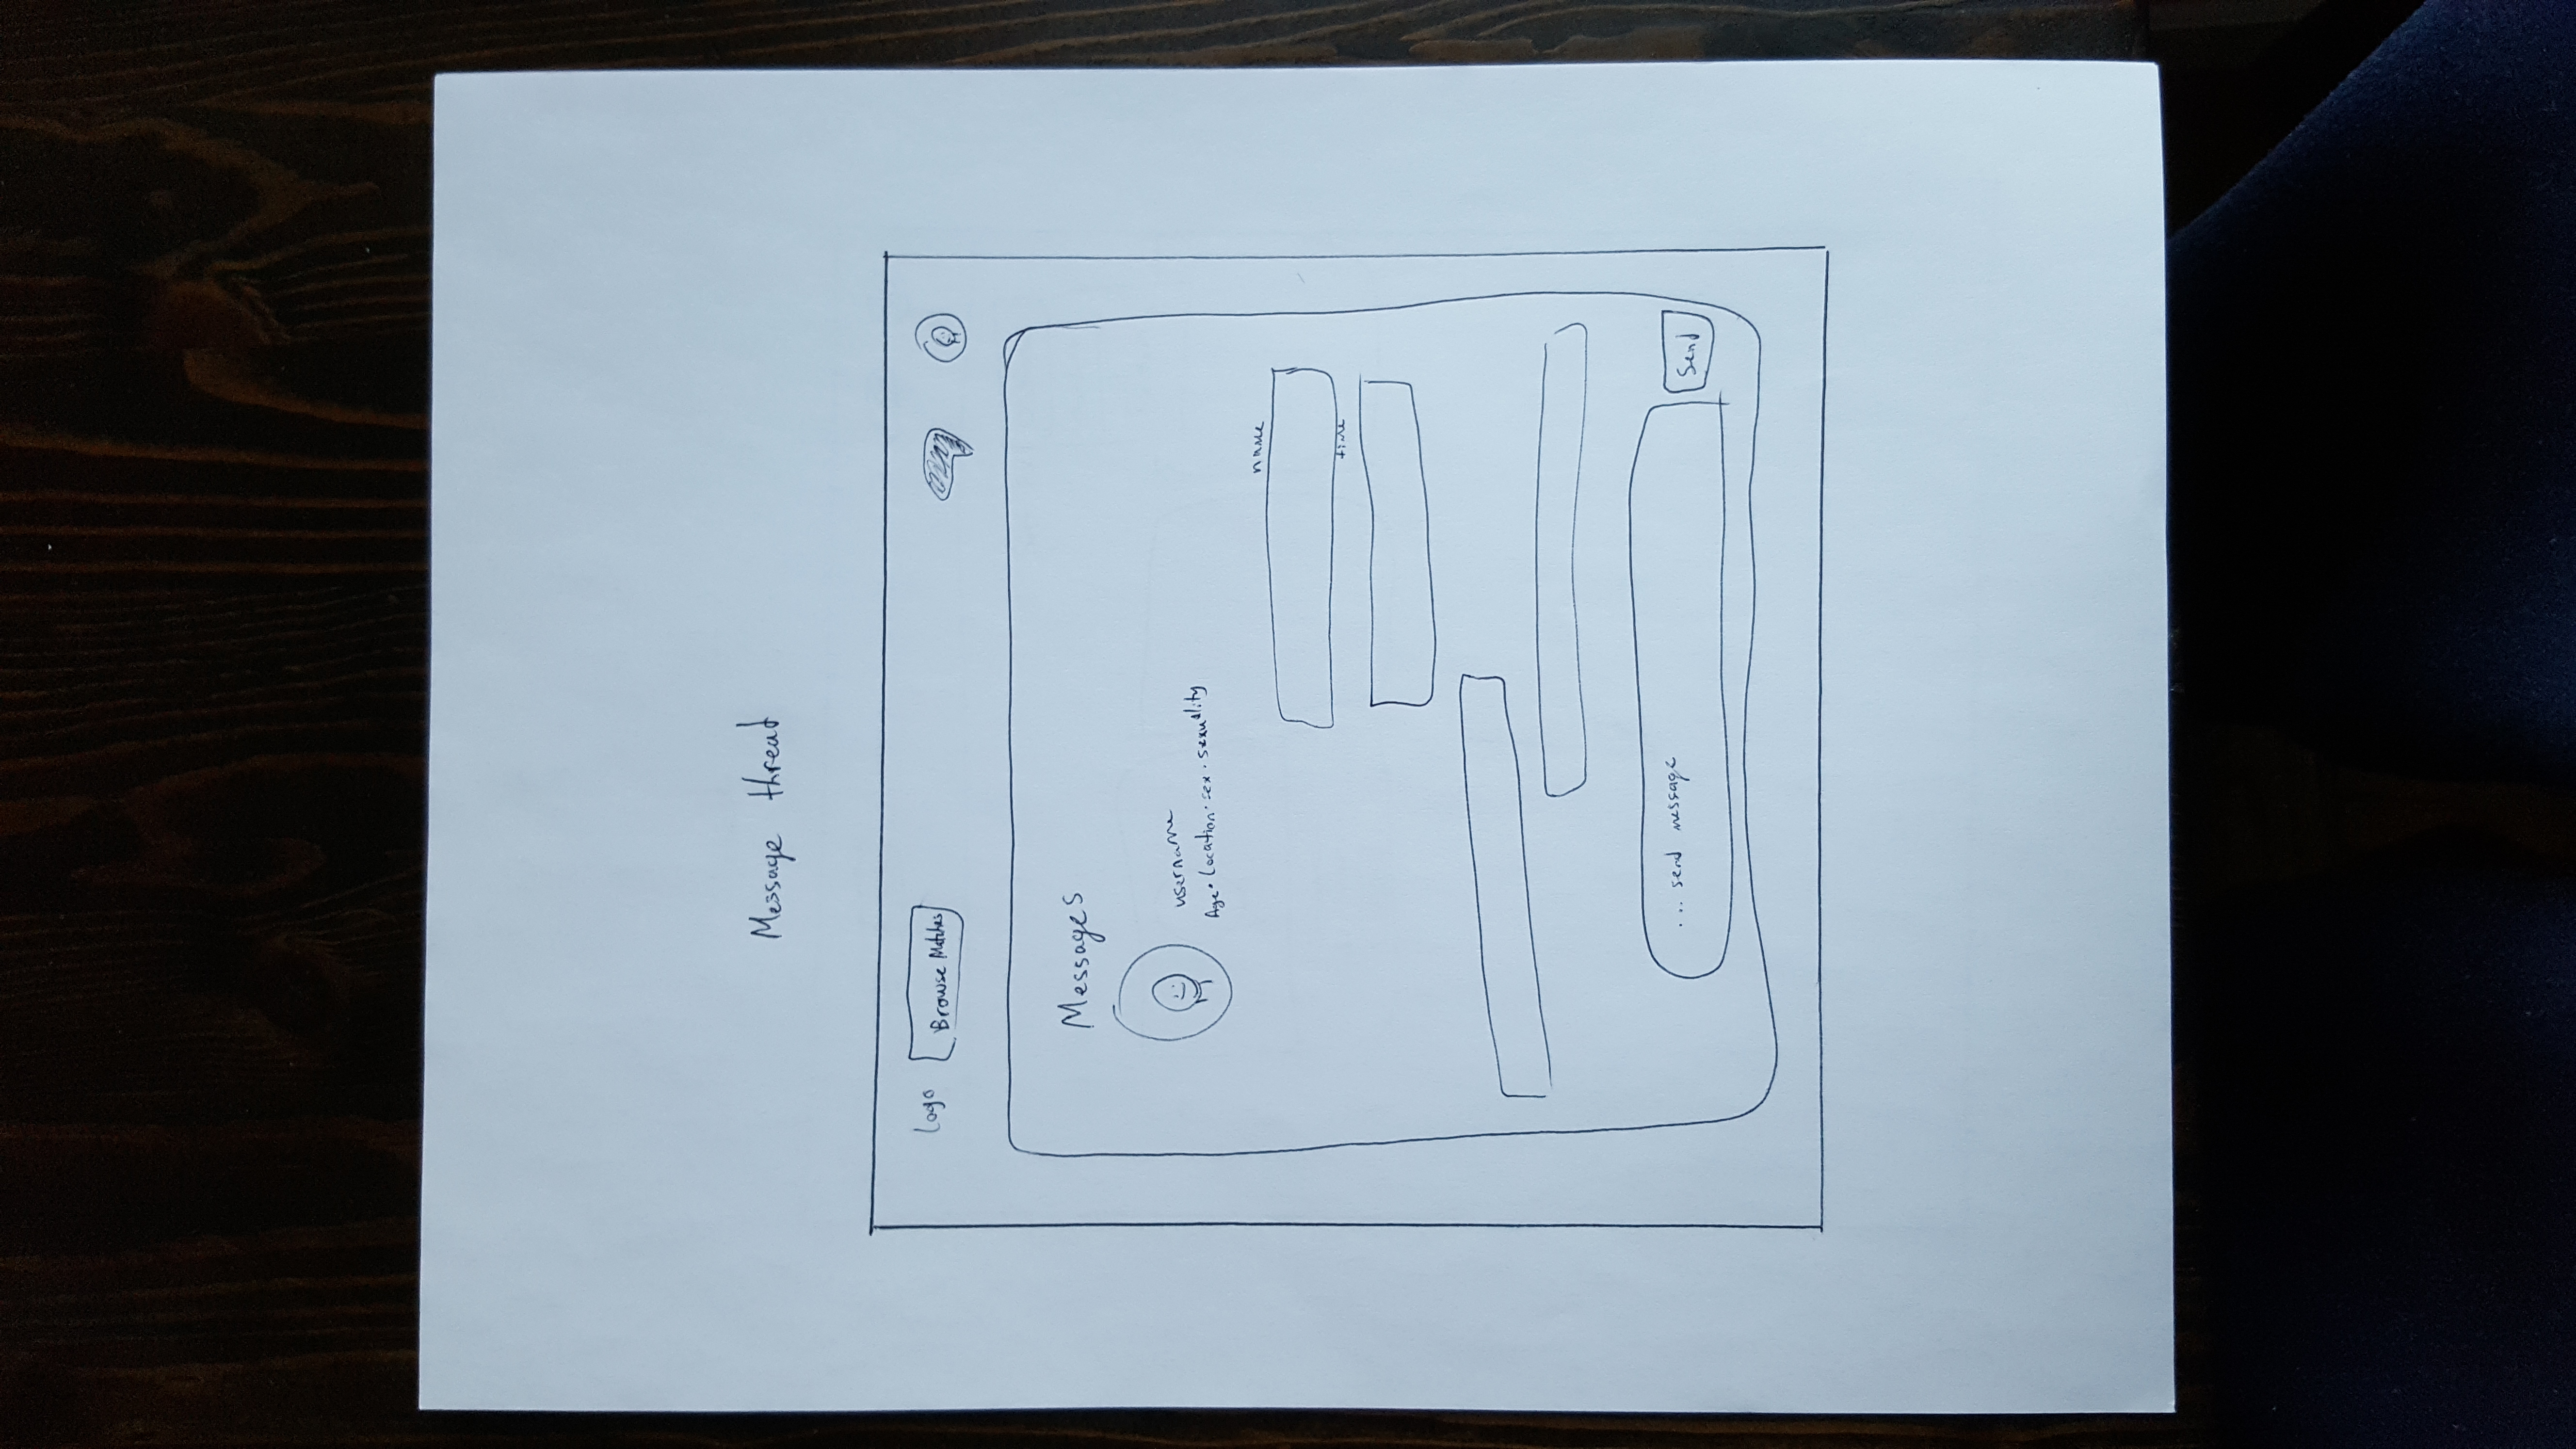 Message thread
Logo
Browse Matches
Messages
username
Age · Location · sex · sexuality
name
time
... send message
Send